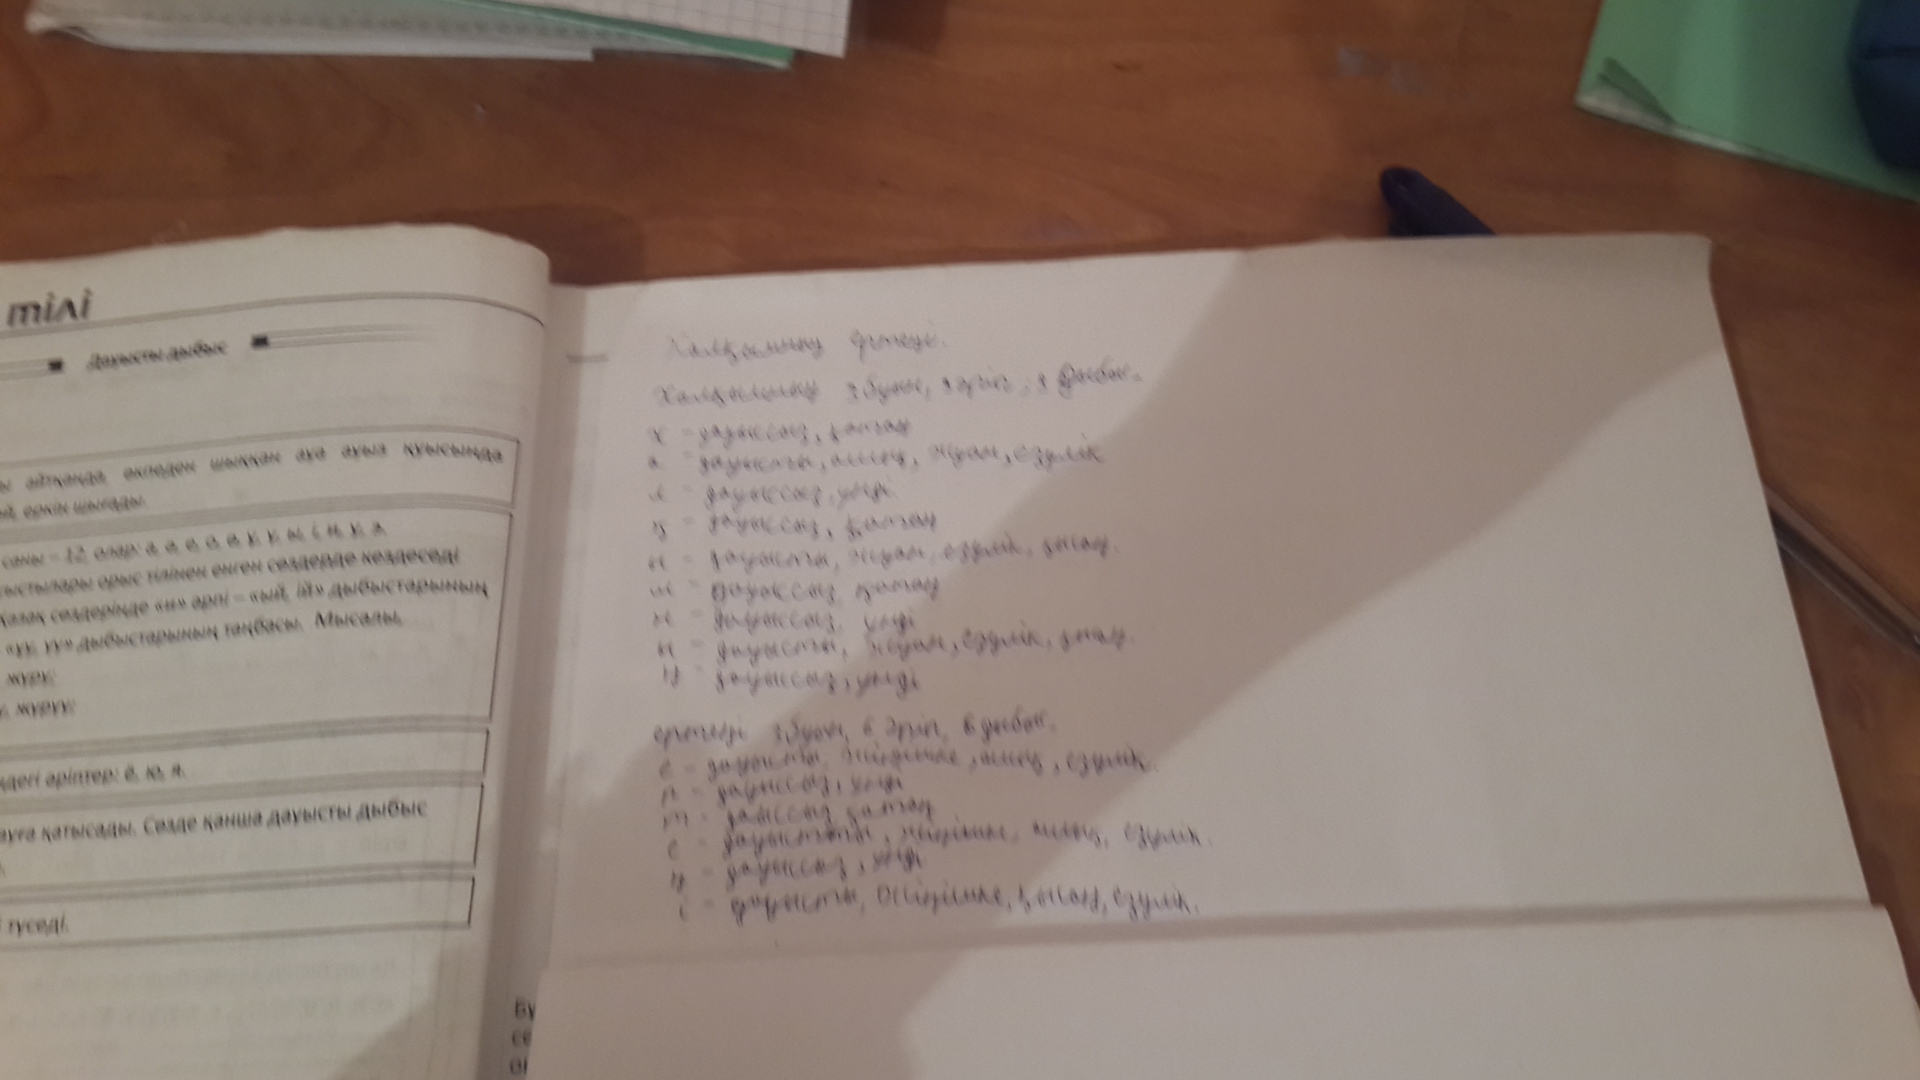 тілі
Дауысты дыбыс
ы айтқанда, өкпеден шыққан ауа ауыз қуысында
ай, еркін шығады.
саны – 12, олар: а, ә, е, о, ө, ұ, ү, ы, і, и, у, э.
ыстылары орыс тілінен енген сөздерде кездеседі
Қазақ сөздерінде «и» әрпі – «ый, ій» дыбыстарының
«ұу, үу» дыбыстарының таңбасы. Мысалы,
жүру;
жүрүу;
ндегі әріптер: ё, ю, я.
ауға қатысады. Сөзде қанша дауысты дыбыс
түседі.
Халқымның ертеңі.
Халқымның 3 буын, әріп, дыбыс.
х – дауыссыз, қатаң
а – дауысты, ашық, жуан, езулік
л – дауыссыз, үнді
қ – дауыссыз, қатаң
дауысты, жуан, езулік, қысаң.
дауыссыз, қатаң
дауыссыз, үнді
дауысты, жуан, езулік, қысаң.
ң – дауыссыз, үнді
ертеңі 3 буын, 6 әріп, 6 дыбыс.
е – дауысты, жіңішке, ашық, езулік.
р – дауыссыз, үнді
т – дауыссыз қатаң
е – дауысты, жіңішке, ашық, езулік.
ң – дауыссыз, үнді
і – дауысты, жіңішке, қысаң, езулік.